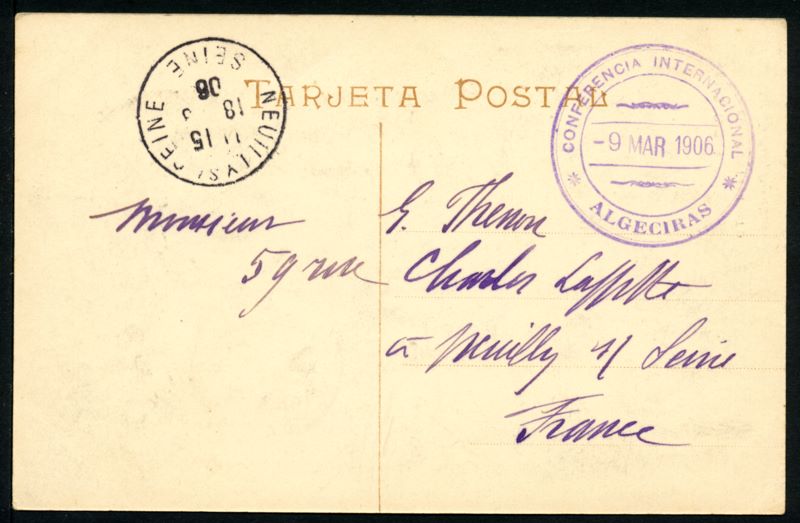 TARJETA POSTAL
CONFERENCIA INTERNACIONAL
-9 MAR 1906
* ALGECIRAS *
NEUILLY S/ SEINE
SEINE
15
18
06
Monsieur G. Thenon
59 rue Charles Laffitte
à Neuilly s/ Seine
France